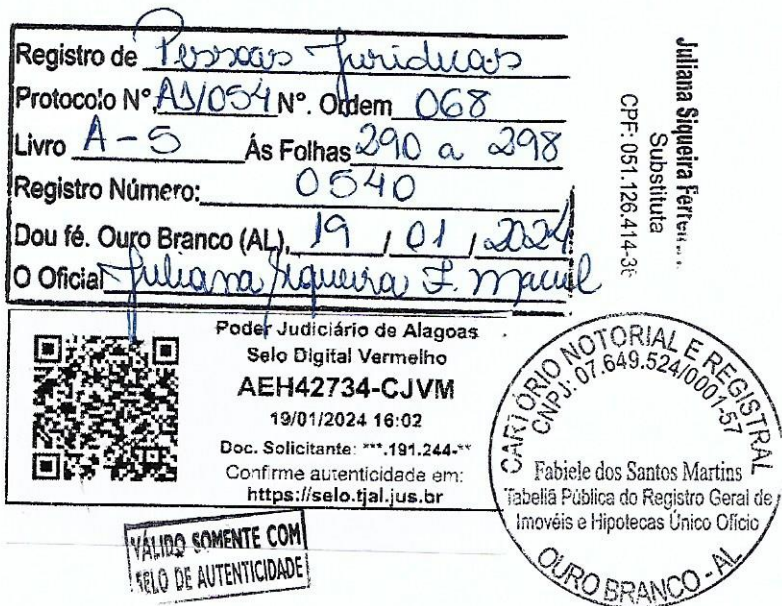 Registro de Pessoas Jurídicas
Protocolo Nº. A1/054 Nº. Ordem 068
Livro A-5 Ás Folhas 290 a 298
Registro Número: 0540
Dou fé. Ouro Branco (AL), 19 / 01 / 2024
O Oficial Juliana Siqueira F. Maciel
Juliana Siqueira
Substituta
CPF: 051.126.414-36
Poder Judiciário de Alagoas
Selo Digital Vermelho
AEH42734-CJVM
19/01/2024 16:02
Doc. Solicitante: ***.191.244-**
Confirme autenticidade em:
https://selo.tjal.jus.br
VÁLIDO SOMENTE COM
SELO DE AUTENTICIDADE
CARTÓRIO NOTORIAL E REGISTRAL
CNPJ: 07.649.524/0001-57
Fabiele dos Santos Martins
Tabeliã Pública do Registro Geral de
Imovéis e Hipotecas Único Ofício
OURO BRANCO - AL